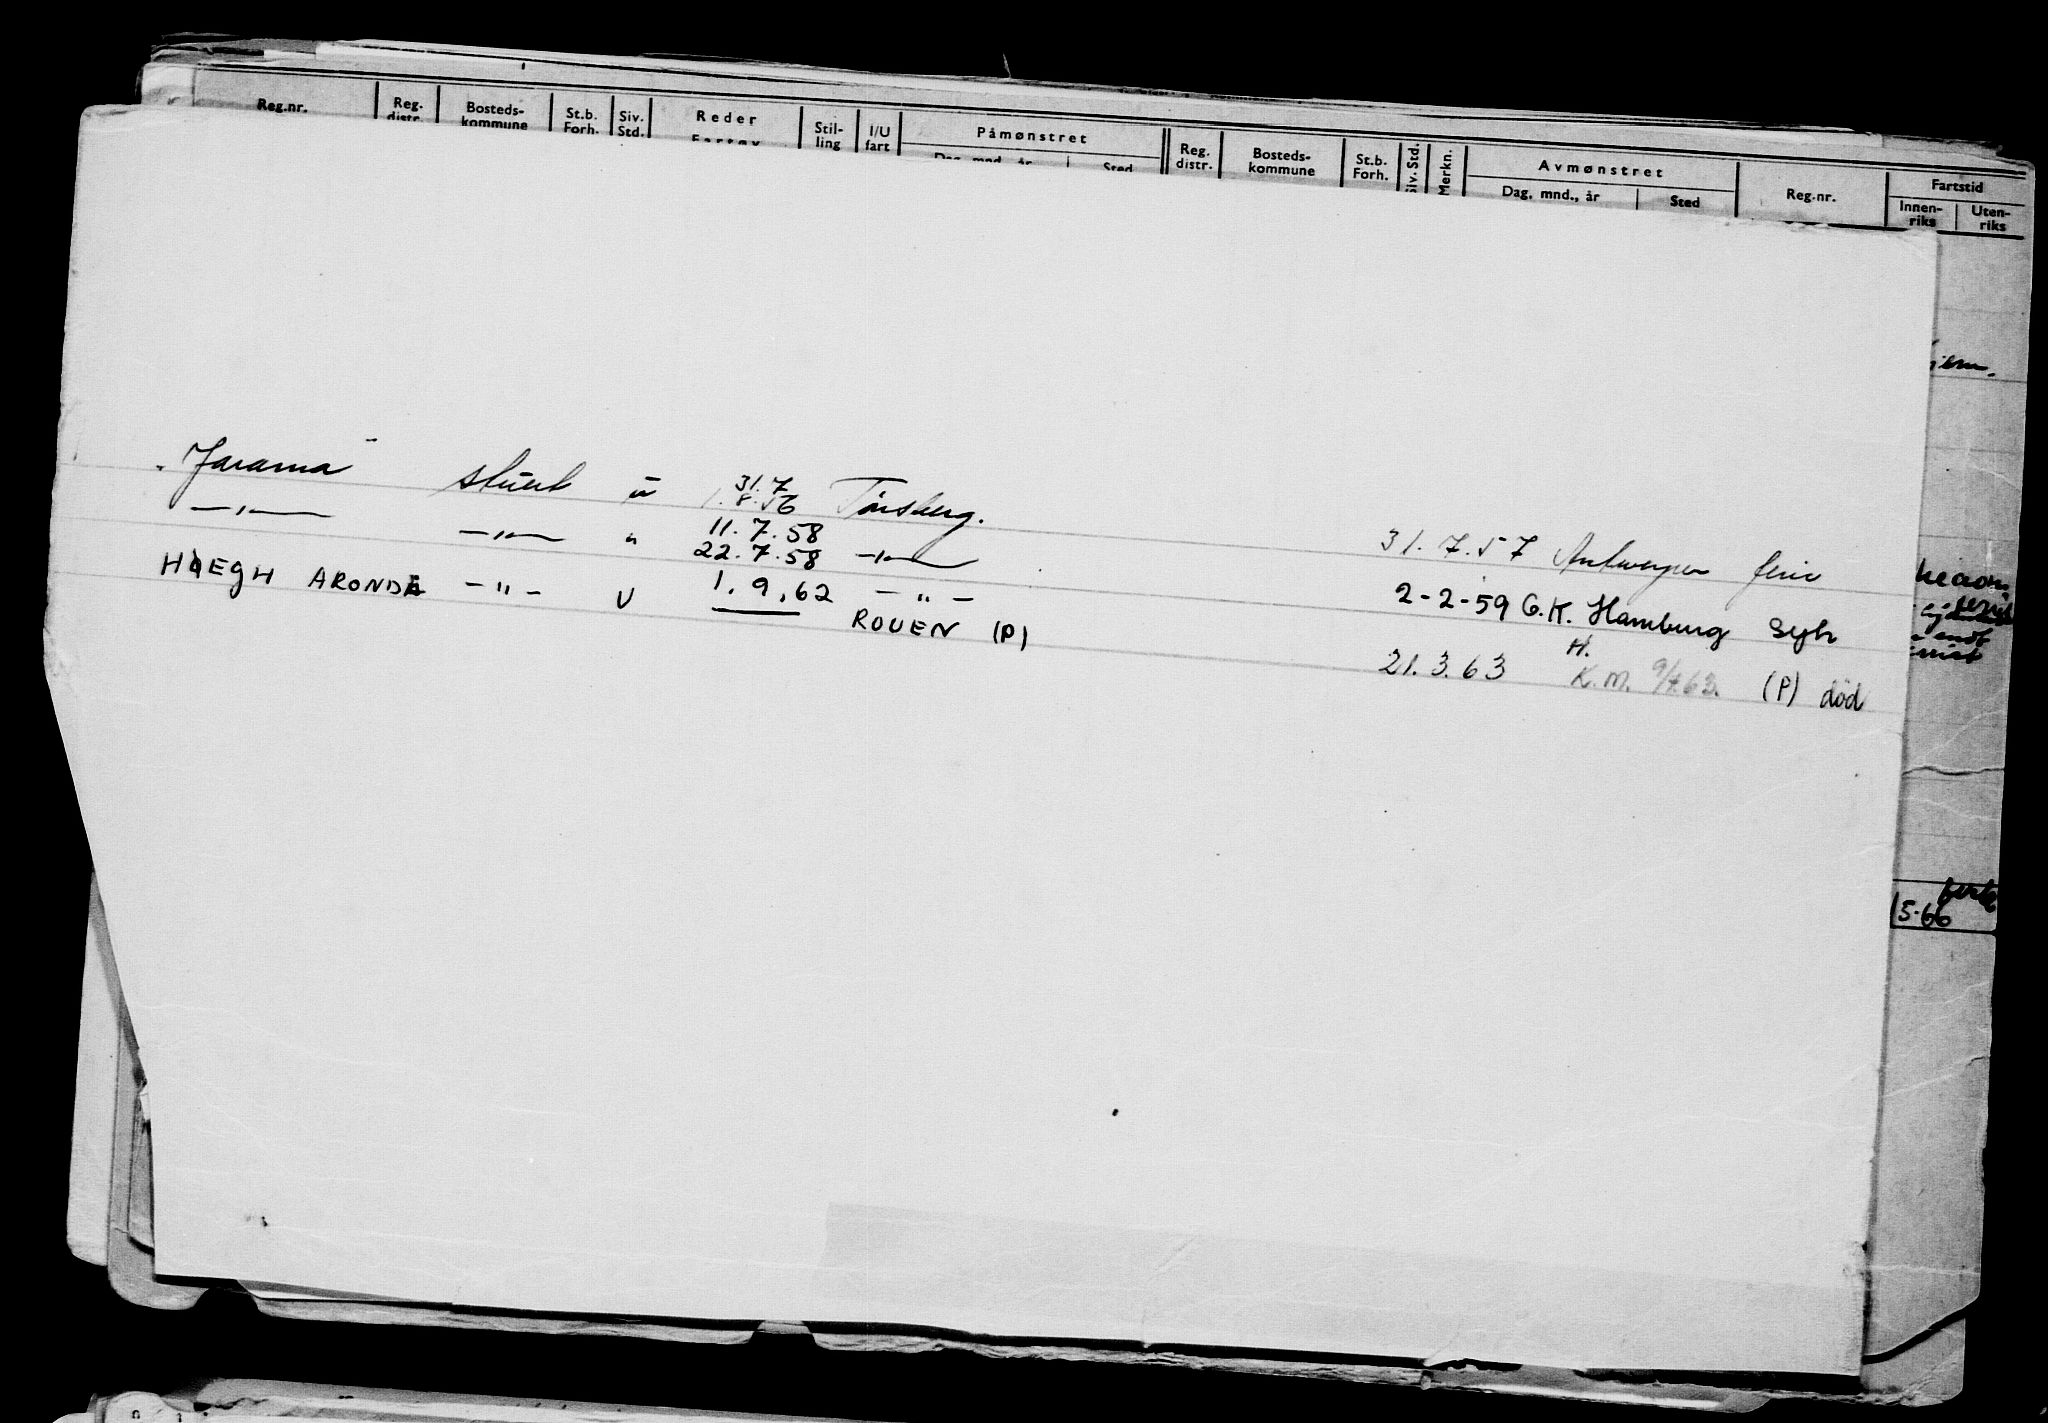 Reg.nr. Reg. distr. Bosteds- kommune St.b. Forh. Siv. Std. Reder Fartøy Stil- ling I/U fart Påmønstret Dag, mnd., år Sted Reg. distr. Bosteds- kommune St.b. Forh. Siv. Std. Merkn. Avmønstret Dag, mnd., år Sted Reg.nr. Fartstid Innen- riks Uten- riks
"Jarama" stuert u 31.7
1.8.56 Tønsberg. 31.7.57 Antwerpen ferie
—"— —"— " 11.7.58
22.7.58 —"— 2-2-59 G.K. Hamburg syk
HØEGH ARONDE —"— U 1.9.62 —"—
ROUEN (P) 21.3.63 H.
K.M. 9/4.63. (P) död
15-66